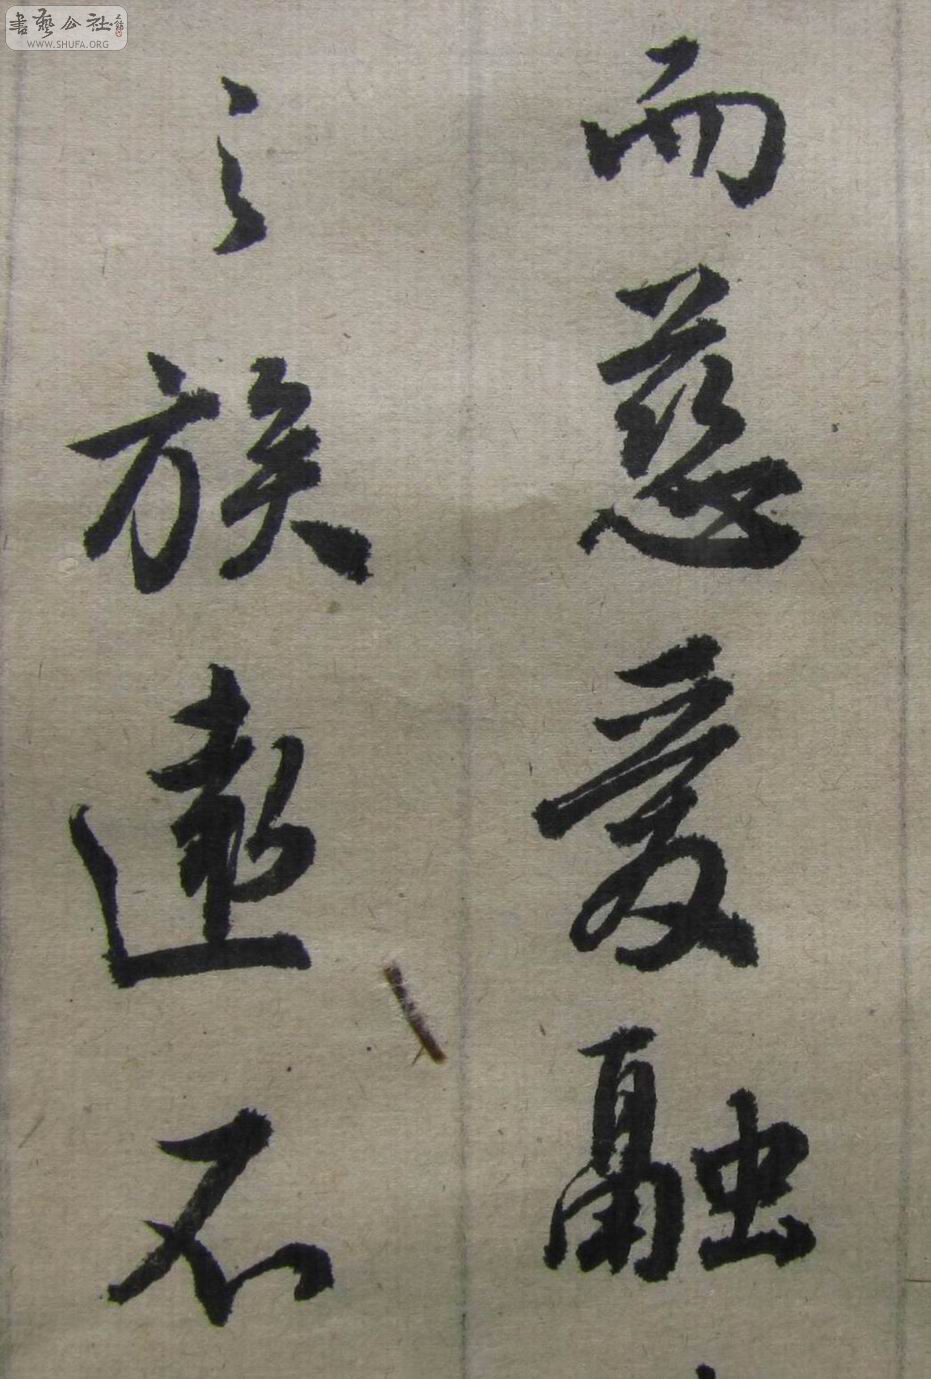 書藝公社
WWW.SHUFA.ORG
而慈愛融
之族遠不